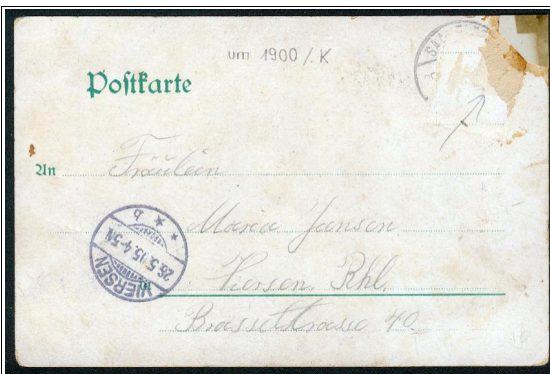 um 1900 /. K
Postkarte
An Fräulein
Maria Jansen
Viersen, Rhl.
Brassetstrasse 40.
VIERSEN
26.5.05.4-5N
* b *